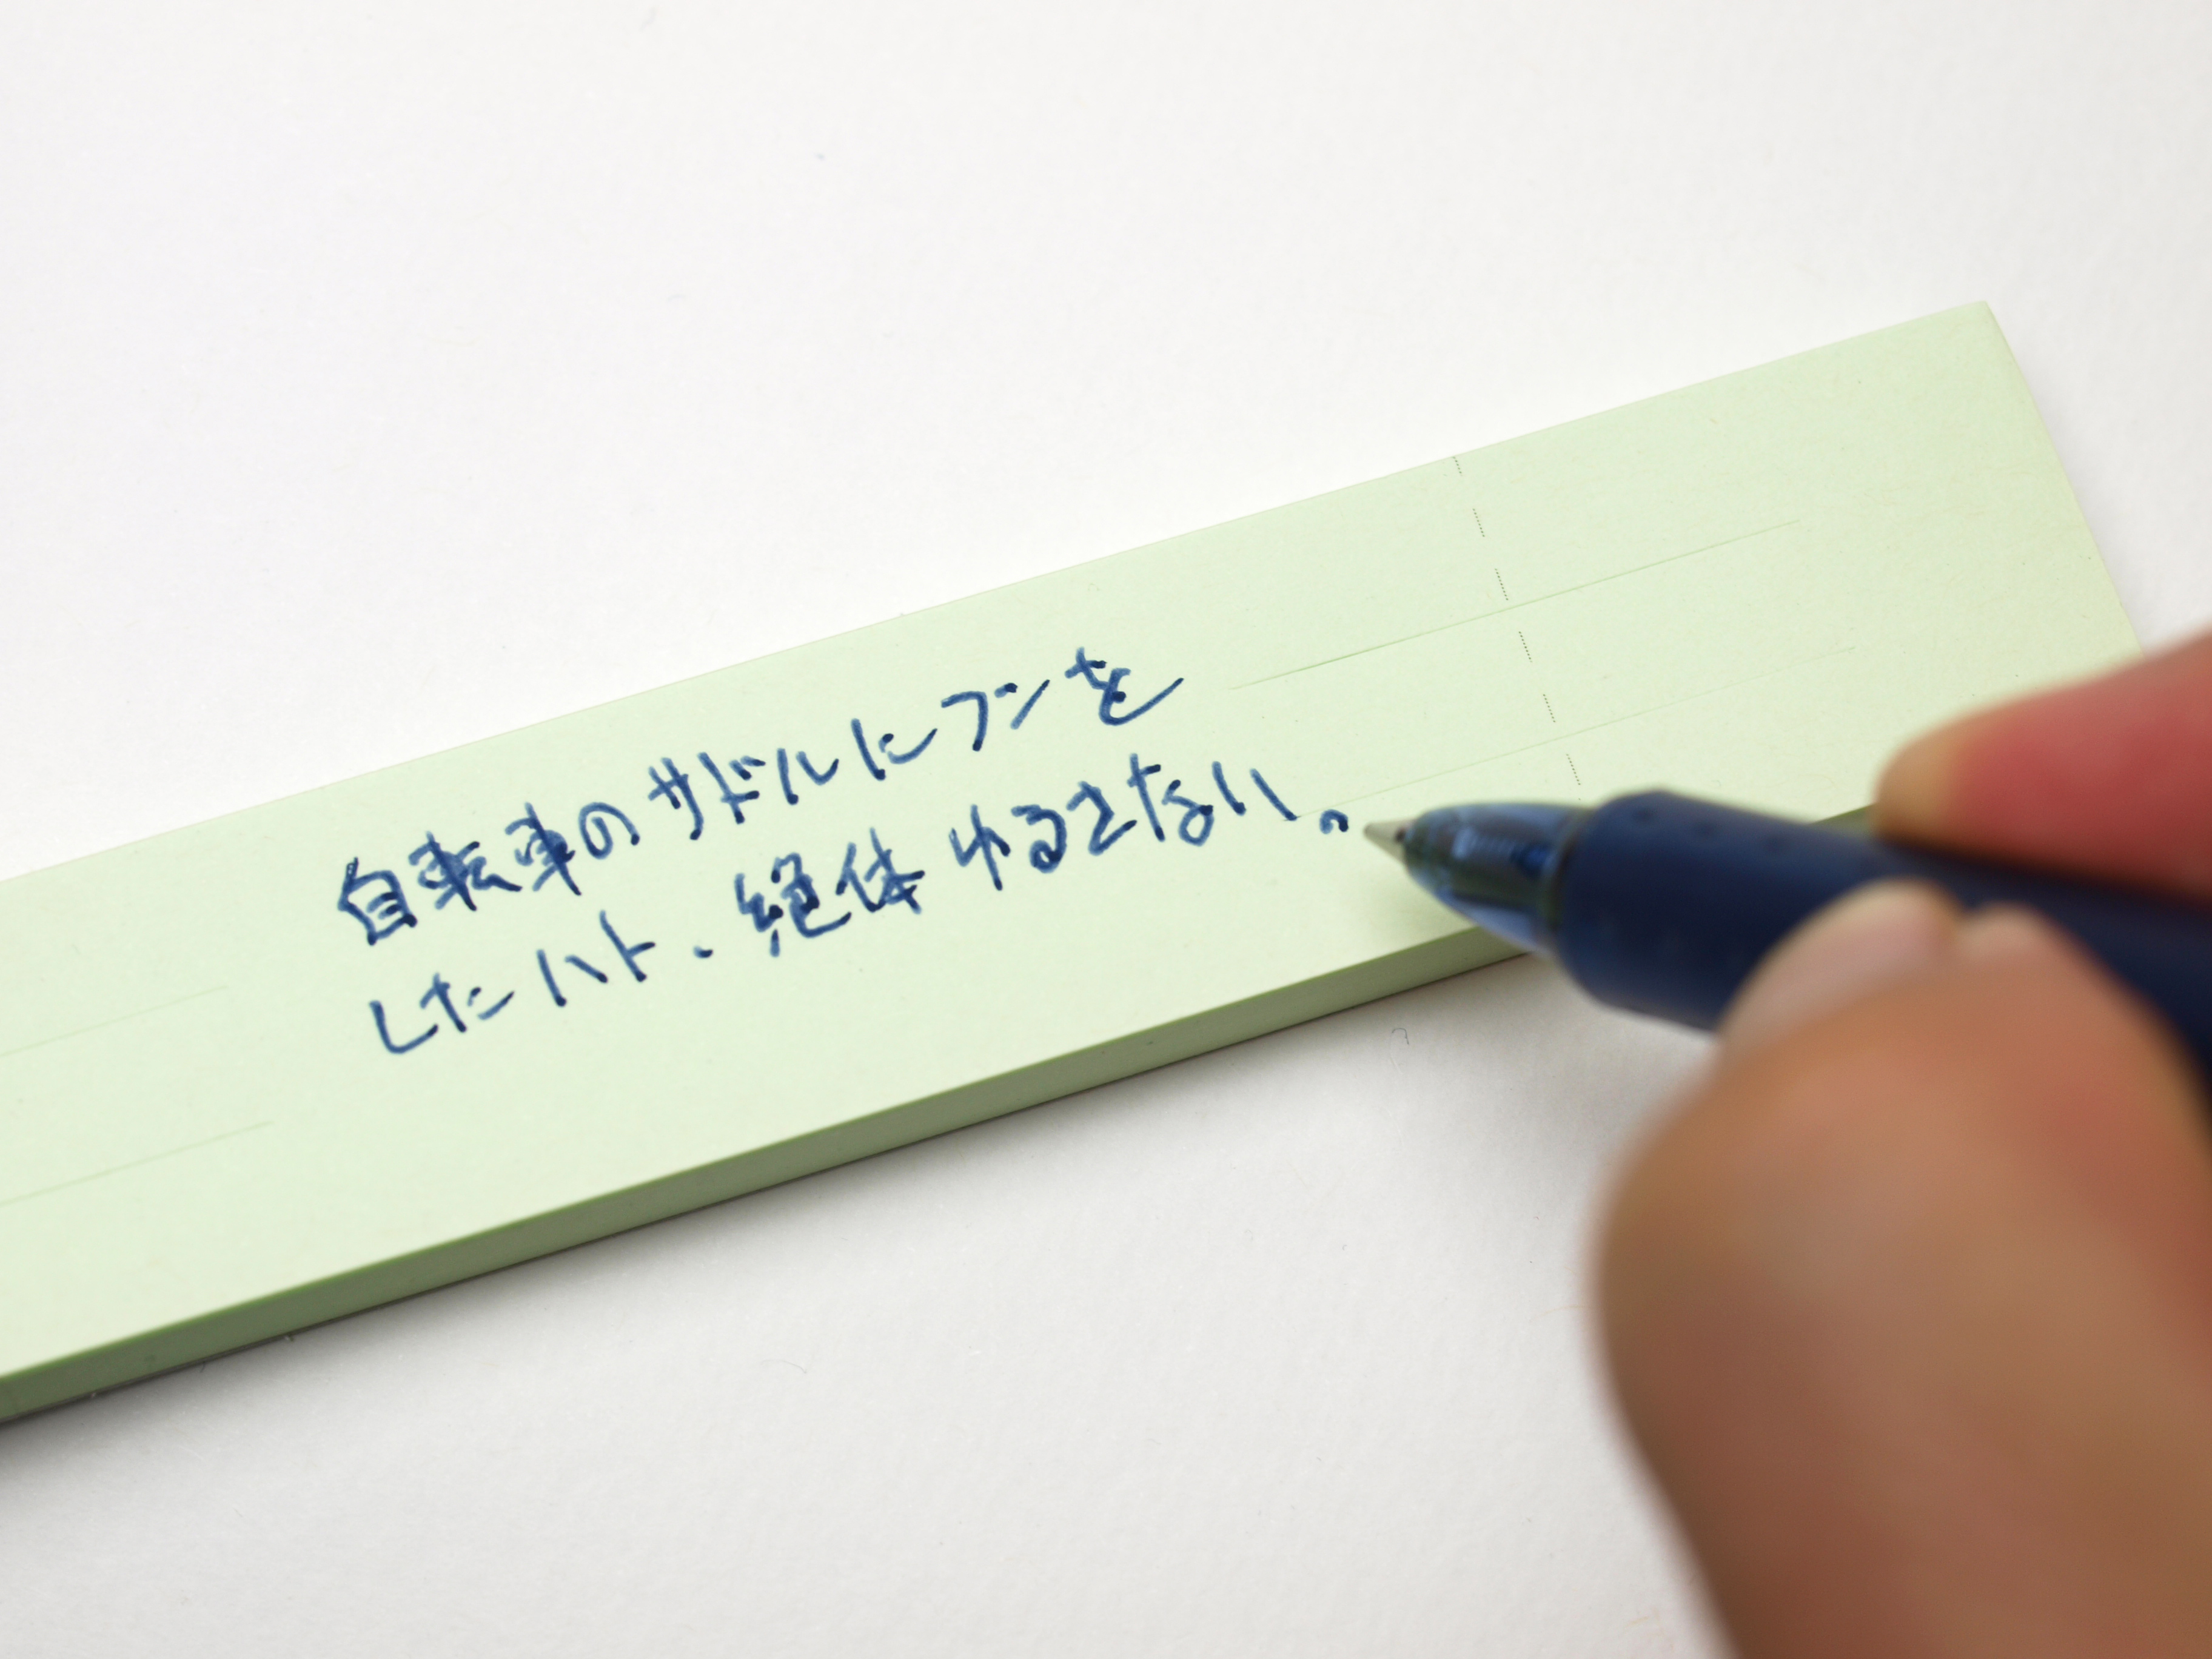 自転車のサドルにフンを
したハト、絶体ゆるさない。